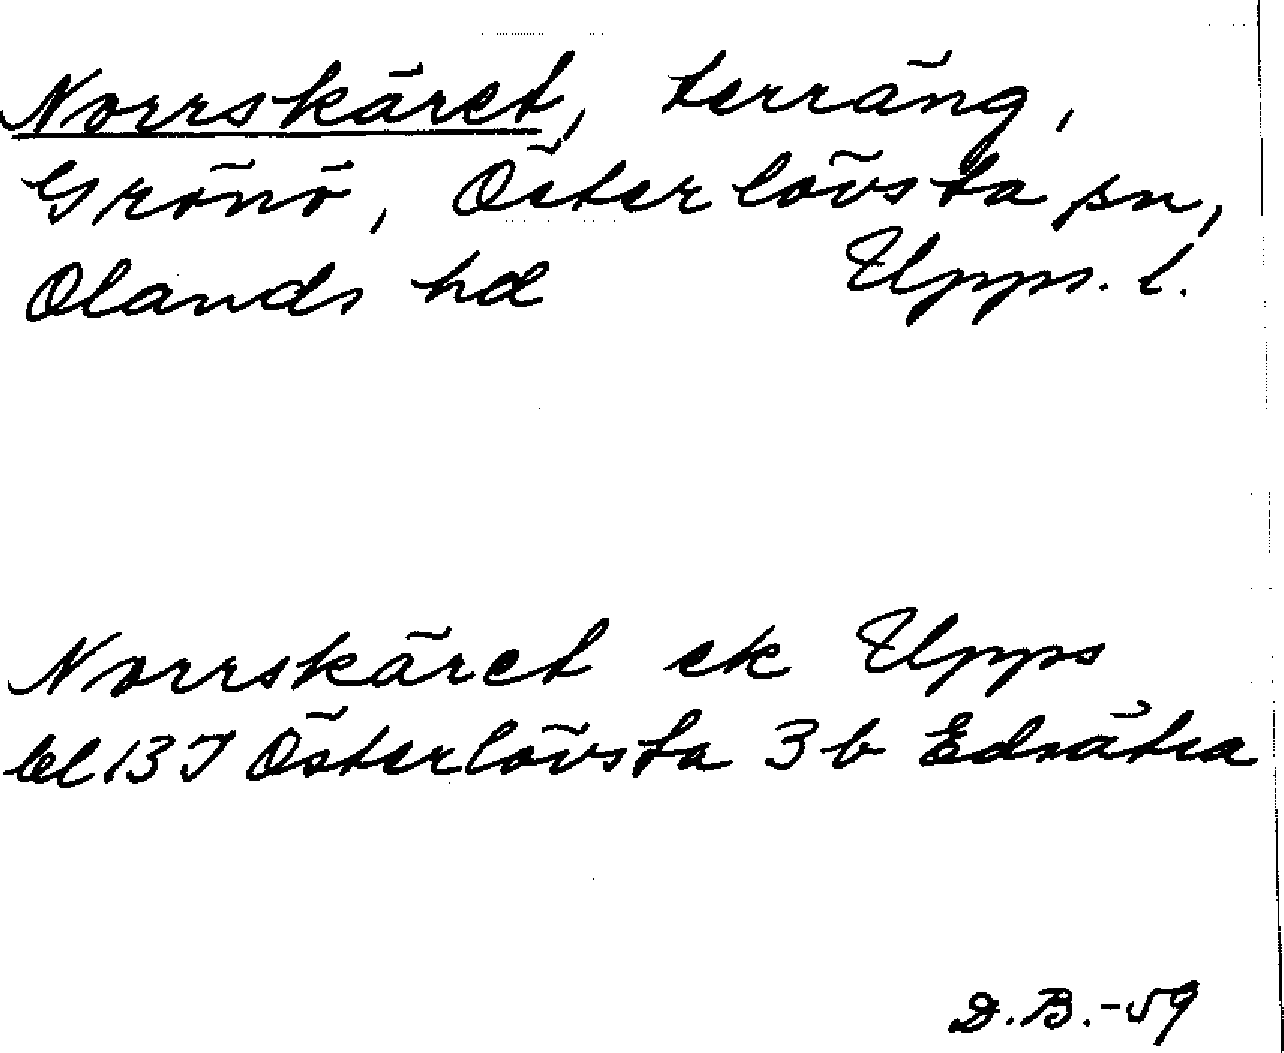 Norrskäret, terräng,
Grönö, Österlövsta sn,
Olands hd Upps. l.
Norrskäret ek Upps
bl 13 I Österlövsta 3 b Edsätra
D.B.-59